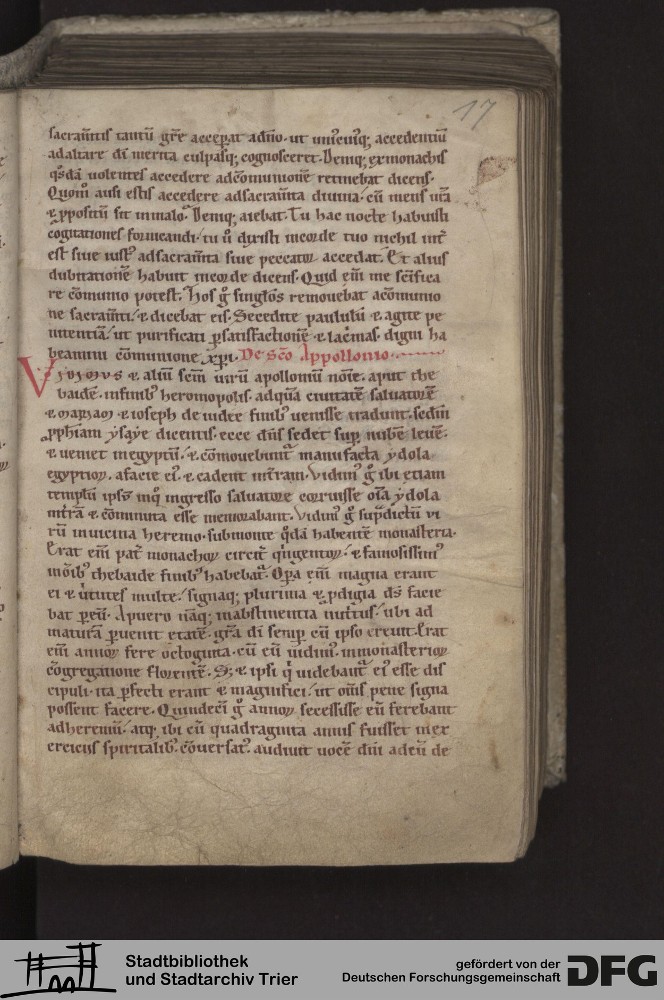 17
sacram̄tis tantū gr̄e accep̄at adn̄o · ut uniꝰcuiꝰq; accedentiū
adaltare di merita culpasq; cognosceret · Deniq; ex monachis
q̄sdā uolentes accedere adcōmunionē retinebat dicens ·
Quom̄ ausi estis accedere adsacram̄ta diuina · cū mens ur̄a
& p̄positū sit inmalo · Deniq; aiebat · Tu hac nocte habuisti
cogitationes fornicandi · tu ū dixisti incorde tuo nichil int̄
est siue iustꝰ adsacram̄ta siue peccator accedat · Et alius
dubitationē habuit incorde dicens · Quid em̄ me sc̄ifica
re cōmunio potest · Hos g° singłos remouebat acōmunio
ne sacram̄ti · & dicebat eis · Secedite paululū & agite pe
nitentiā · ut purificati p̄ satisfactionē & lac̄mas · digni ha
beamini cōmunione xp̄i · De sc̄o Appollonio ·
Vidimus & aliū sc̄m uirū apolloniū nom̄e · aput the
baidē · infinibꝰ heromopolis · adquā ciuitatē saluatorē
& mariam & ioseph de iudee finibꝰ uenisse tradunt · sedm̄
p̄phiam ysaye dicentis · ecce dn̄s sedet sup̄ nubē leuē ·
& ueniet inegyptū · & cōmouebunt̄ manufacta ydola
egyptior̄ · afacie eiꝰ · & cadent int̄ram · Vidimꝰ g° ibi etiam
templū ipsū inq° ingresso saluatore corruisse om̄ia ydola
int̄rā & cōminuta esse memorabant · Vidimꝰ g° sup̄dictū ui
rū inuicina heremo · submonte q°dā habentē monasteria ·
Erat em̄ pat̄ monachor̄ circit̄ q̄ngentor̄ · & famosissimꝰ
inōibꝰ thebaide finibꝰ habebat̄ · Opa em̄ magna erant
ei & ūtutes multe · signaq; plurima & p̄digia ds̄ facie
bat p̄ eū · Apuero nāq; inabstinentia nutritus · ubi ad
maturā p̄uenit etatē · gr̄a di semp̄ cū ipso creuit · Erat
em̄ annor̄ fere octoginta · cū eū uidimꝰ inmonasterior̄
cōgregatione florentē · S; & ipsi qui uidebant̄ eiꝰ esse dis
cipuli · ita p̄fecti erant & magnifici · ut om̄s pene signa
possent facere · Quindeci g° annor̄ secessisse eū ferebant
adheremū · atq; ibi cū quadraginta annis fuisset inex
erciciis spiritalibꝰ cōuersatꝰ · audiuit uocē dn̄i adeū de
Stadtbibliothek
und Stadtarchiv Trier
gefördert von der
Deutschen Forschungsgemeinschaft
DFG